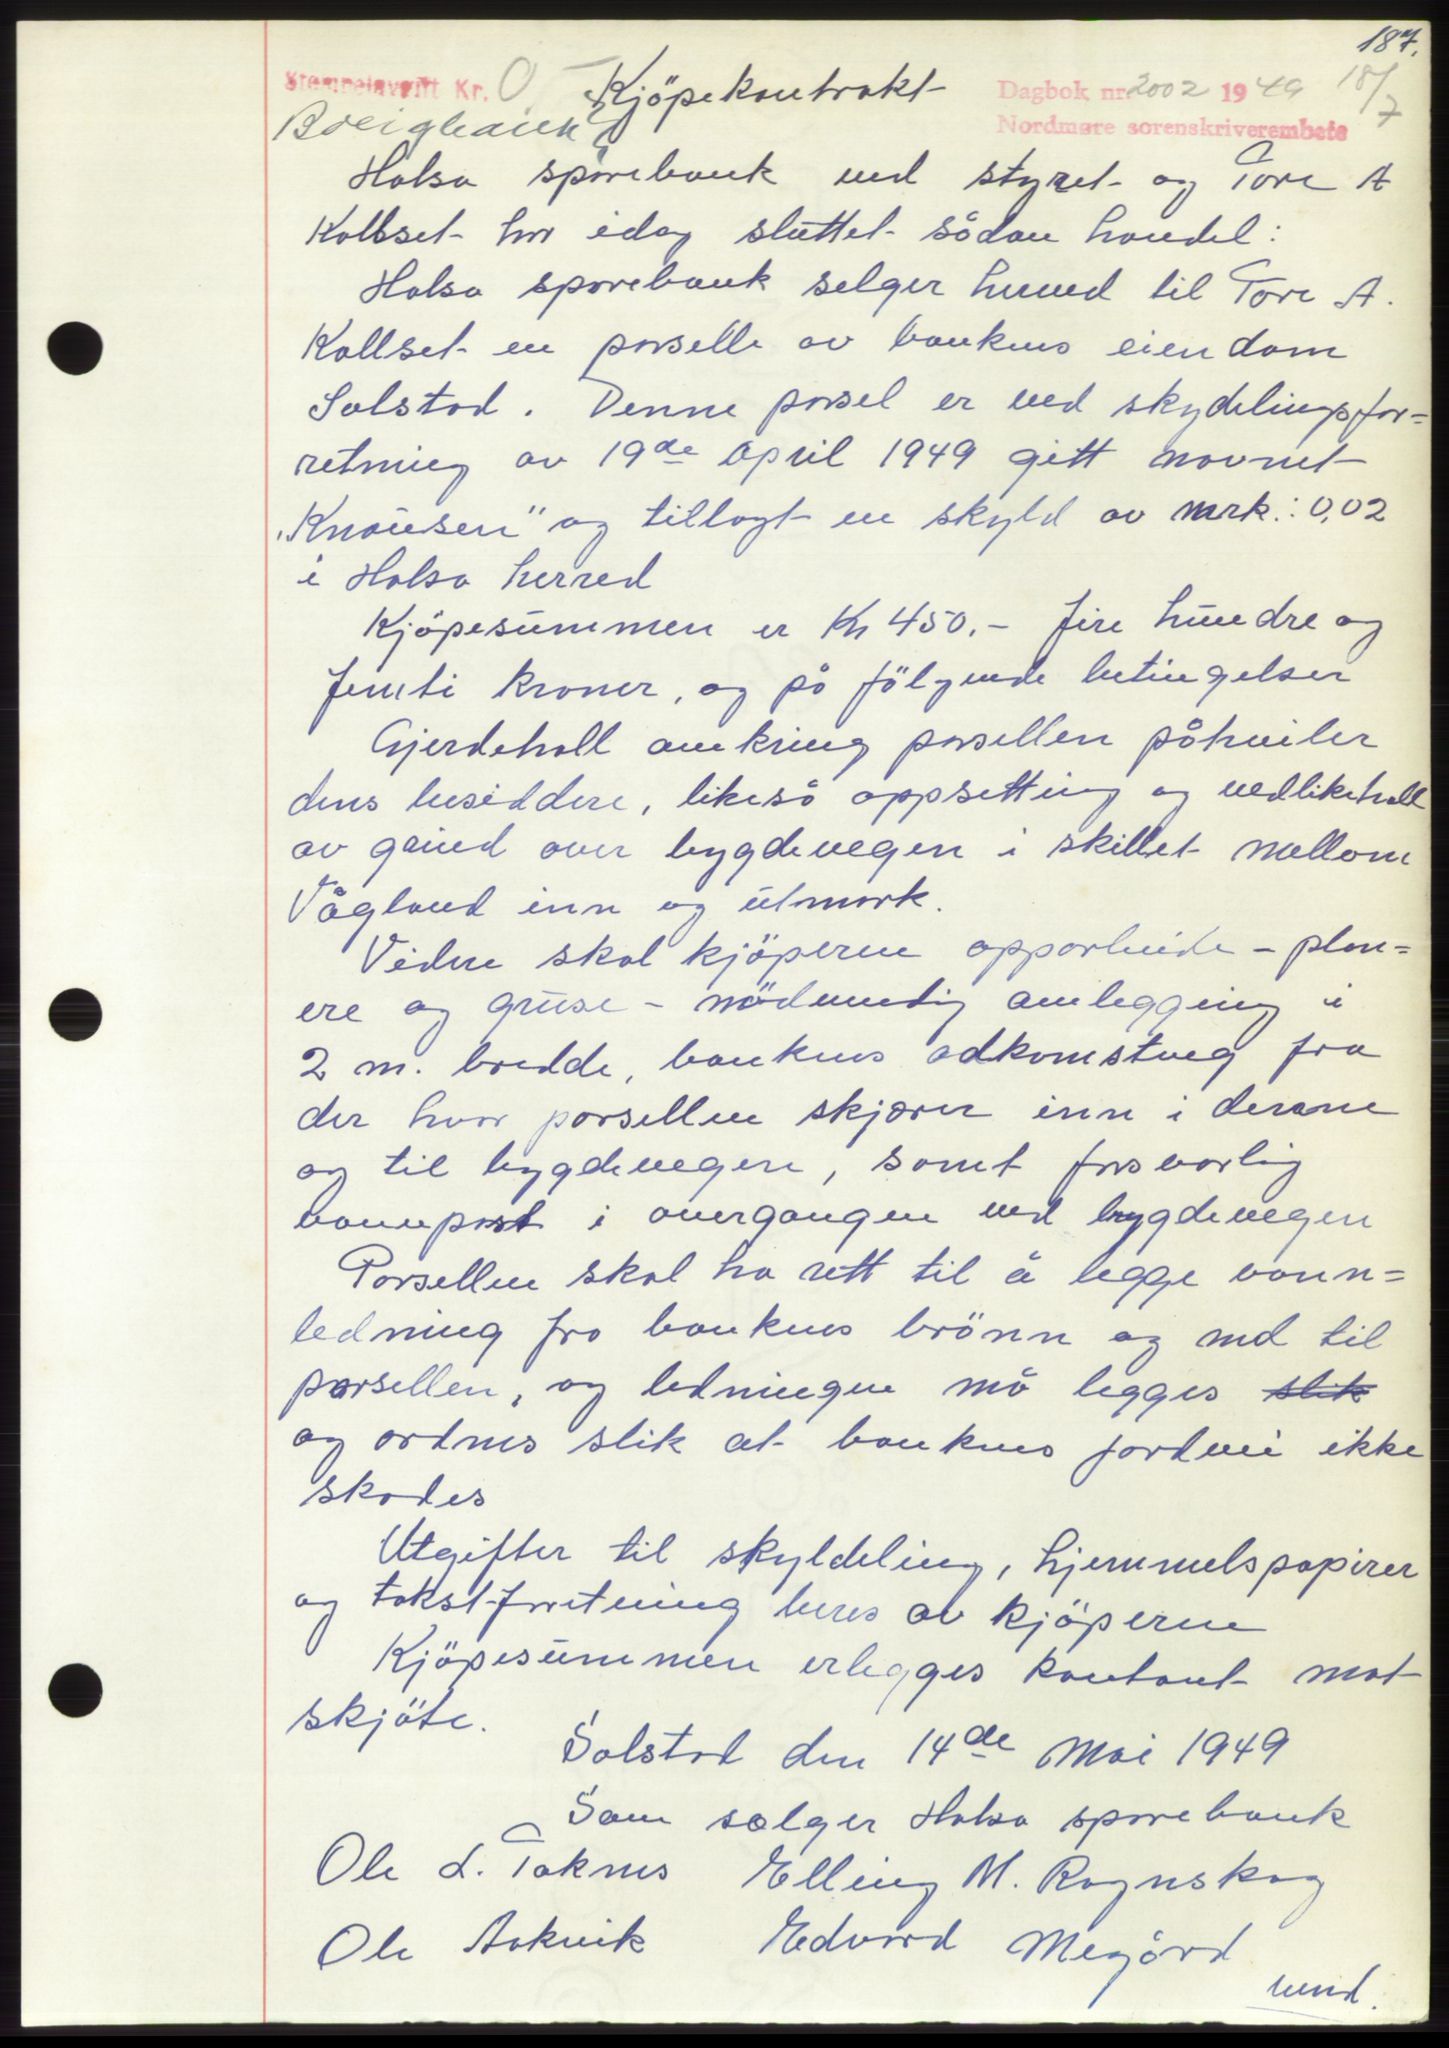 187.
Stempelavgift Kr. 0 Kjöpekontrakt Dagbok nr 2002 1949 18/7
Nordmøre sorenskriverembete
Halsa sparebank ved styret og Tore A
Kallset har idag sluttet sådan handel:
Halsa sparebank selger herved til Tore A.
Kallset en parselle av bankens eiendom
Solstad. Denne parsel er ved skydelingsfor=
retning av 19de April 1949 gitt navnet
"Knausen" og tillagt en skyld av mrk.: 0,02
i Halsa herred
Kjöpesummen er Kr 450.- fire hundre og
femti kroner, og på fölgende betingelser
Gjerdehall omkring parsellen påhviler
dens besiddere, likeså oppsetting og vedlikehall
av grind over bygdevegen i skillet mellom
Vågland inn og utmark.
Videre skal kjöperne opparbeide - plan=
ere og gruse - nödvendig omlegging i
2 m. bredde, bankens adkomstveg fra
der hvor parsellen skjærer inn i denne
og til bygdevegen, samt forsvarlig
vannpost i overgangen ved bygdevegen
Parsellen skal ha rett til å legge vann=
ledning fra bankens brönn og ned til
parsellen, og ledningen må legges slik
og ordnes slik at bankens jordvei ikke
skades
Utgifter til skyldeling, hjemmelspapirer
og takst-forretning beres av kjöperne
Kjöpesummen erlegges kontant mot
skjöte.
Solstad den 14de Mai 1949
Som sælger Halsa sparebank
Ole L. Taknes Elling M. Rognskog
Ole Aakvik Edvard Megård
vend.